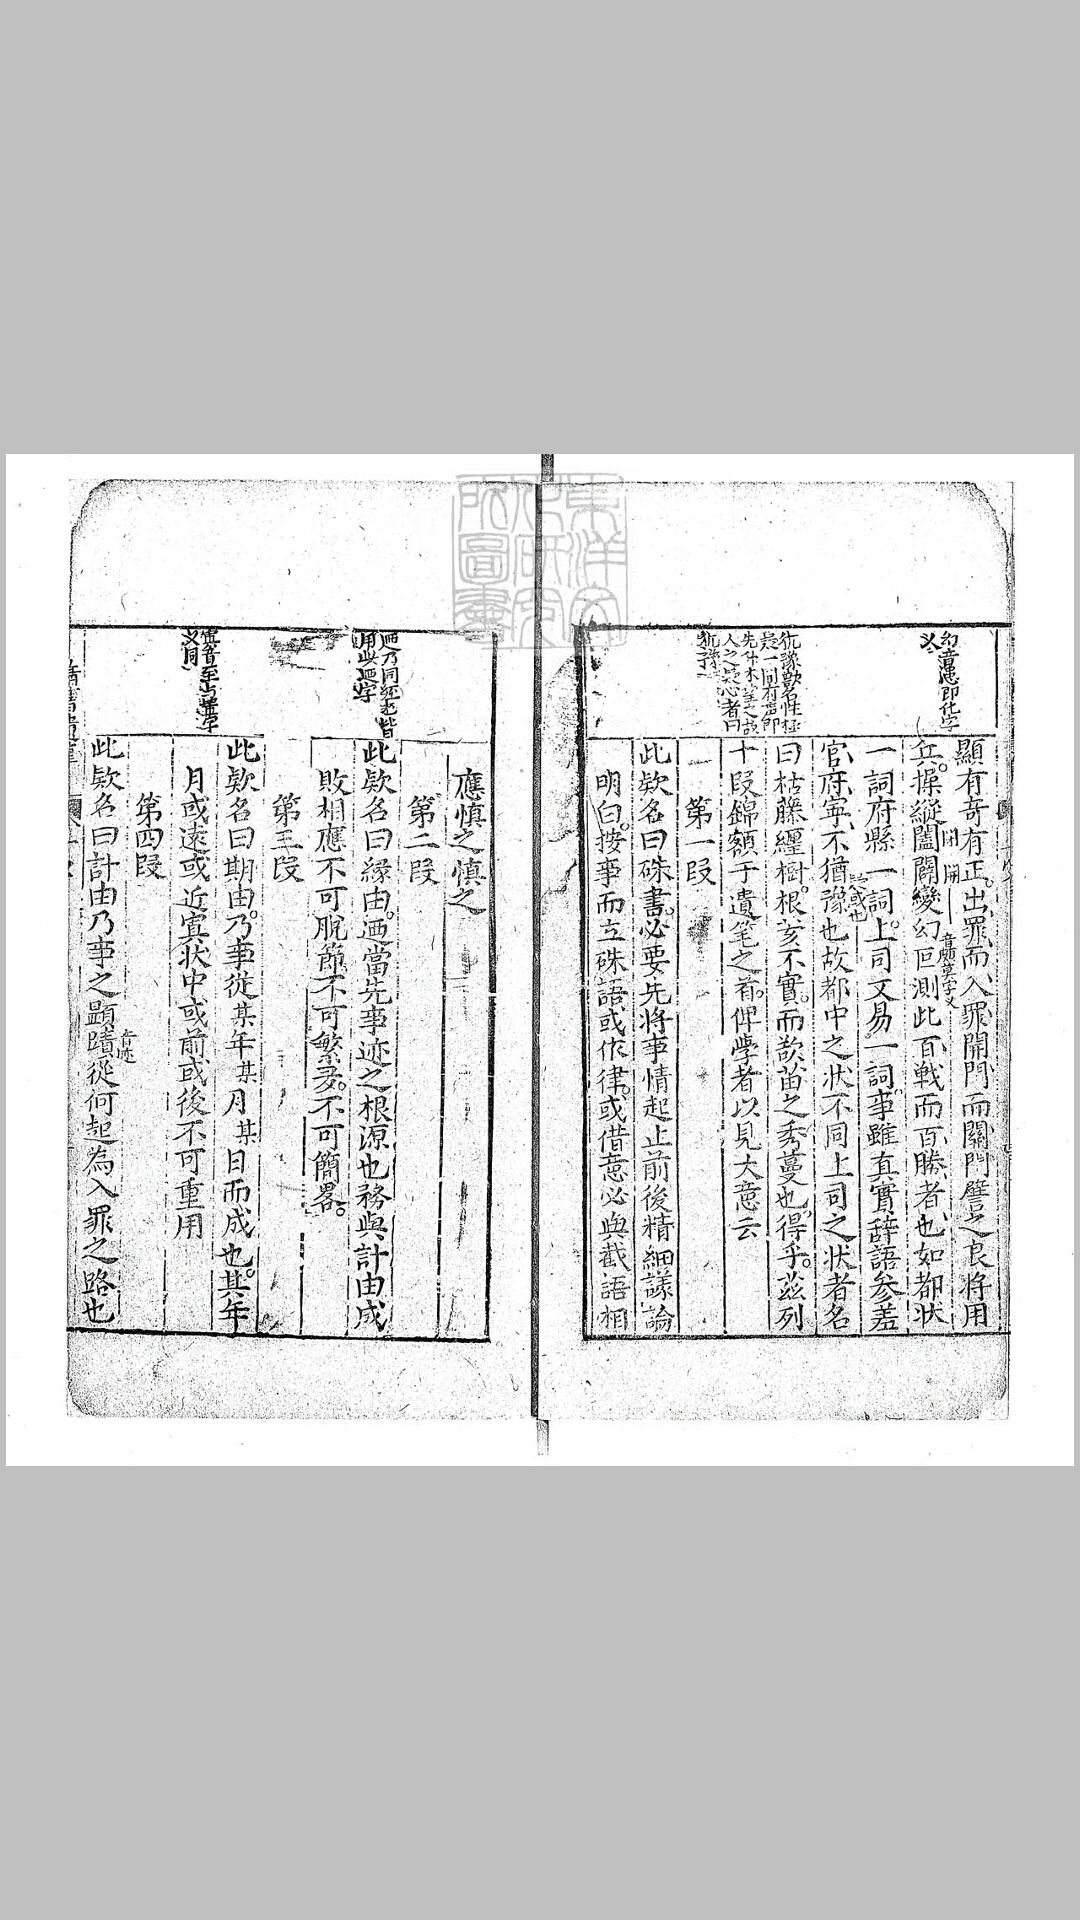 幻音患即化字
义
顯有竒有正。出罪而入罪。開門而關門。譬之良将用
兵。操縱闔闢變幻叵測。此百戰而百勝者也。如都状
閉 開
音頗莫字义
一詞。府縣一詞。上司文易一詞。事雖真實。辞語参差
官府寕不猶豫也。故都中之状不同上司之状者。名
疑惑也
犹豫獸名性極
曰枯藤纒樹。根亥不實。而欲苗之秀蔓也。得乎。兹列
十段錦額于遺笔之首。俾學者以見大意云
第一段
此欵名曰硃書。必要先将事情起止前後精細議論
明白。按事而立硃語。或依律。或借意。必與截語相
應慎之慎之
第二段
廼乃同經史皆
用此廼字
此欵名曰縁由。廼當先事迹之根源也。務與計由成
敗相應。不可脫節。不可繁多。不可簡畧。
第三段
此欵名曰期由。乃事從某年某月某日而成也。其年
月或遠或近。寘状中或前或後不可重用
寘音至与置字
义同
第四段
此欵名曰計由。乃事之顕蹟。從何起為入罪之路也
音迹